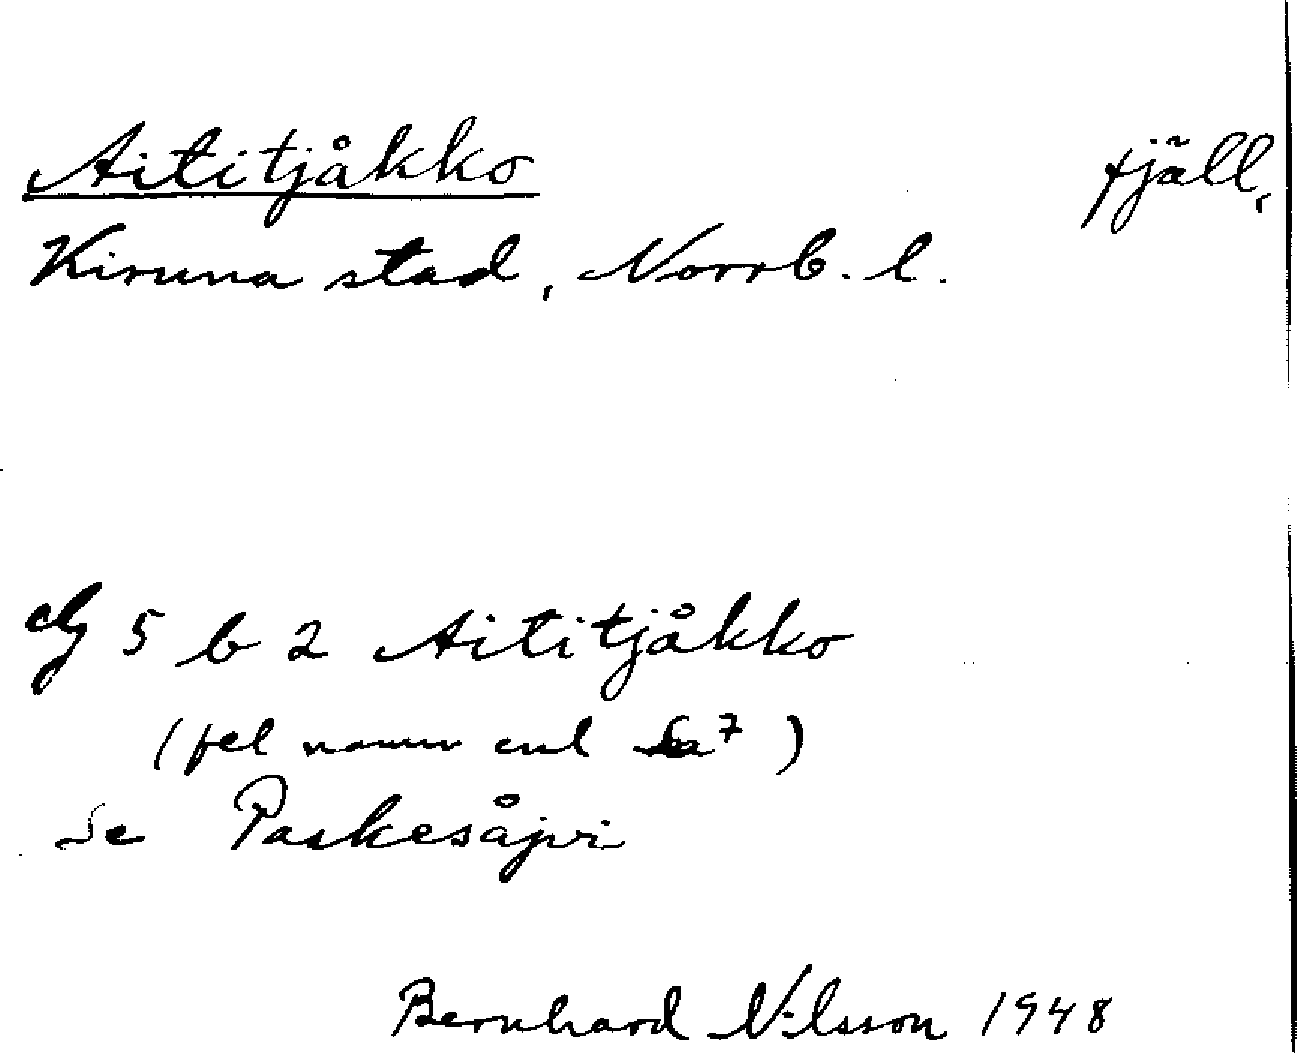 Aititjåkko fjäll,
Kiruna stad, Norrb. l.
5 b 2 Aititjåkko
(fel namn enl Sa 7)
Se Paskesåjvi
Bernhard Nilsson 1948